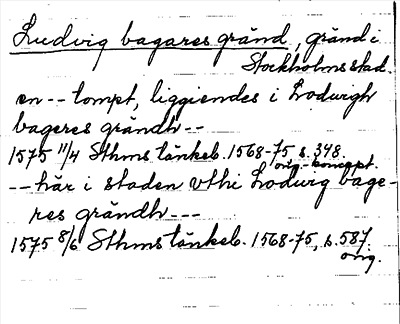 Ludvig bagares gränd, gränd i
Stockholms stad.
en -- tompt, liggiendes i Lodwigh
bageres grändh --
1575 11/4 Sthms tänkeb. 1568-75 s. 348.
orig.-koncept.
-- här i staden vthi Lodwig bage-
res grändh ---
1575 8/6 Sthms tänkeb. 1568-75, s. 587.
orig.